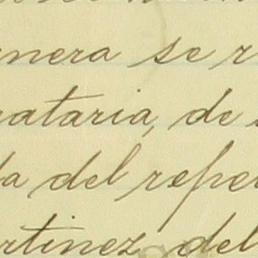 nera se r
ataria, de
da del repe
rtinez del